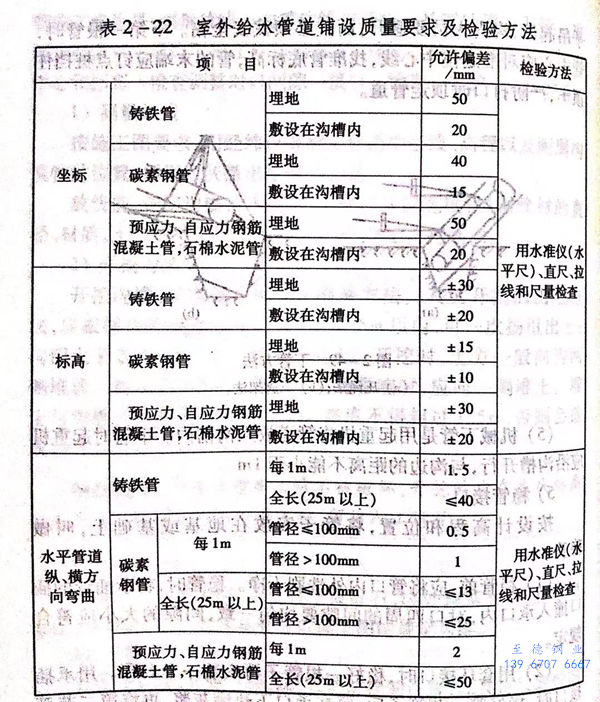 表2-22 室外给水管道铺设质量要求及检验方法
项 目 允许偏差/mm 检验方法
坐标 铸铁管 埋地 50
敷设在沟槽内 20
碳素钢管 埋地 40
敷设在沟槽内 15
预应力、自应力钢筋混凝土管;石棉水泥管 埋地 50
敷设在沟槽内 20
用水准仪(水平尺)、直尺、拉线和尺量检查
标高 铸铁管 埋地 ±30
敷设在沟槽内 ±20
碳素钢管 埋地 ±15
敷设在沟槽内 ±10
预应力、自应力钢筋混凝土管;石棉水泥管 埋地 ±30
敷设在沟槽内 ±20
水平管道纵、横方向弯曲 铸铁管 每1m 1.5
全长(25m以上) ≤40
碳素钢管 每1m 管径≤100mm 0.5
管径>100mm 1
全长(25m以上) 管径≤100mm ≤13
管径>100mm ≤25
预应力、自应力钢筋混凝土管;石棉水泥管 每1m 2
全长(25m以上) ≤50
用水准仪(水平尺)、直尺、拉线和尺量检查
至德钢业
139 6707 6667